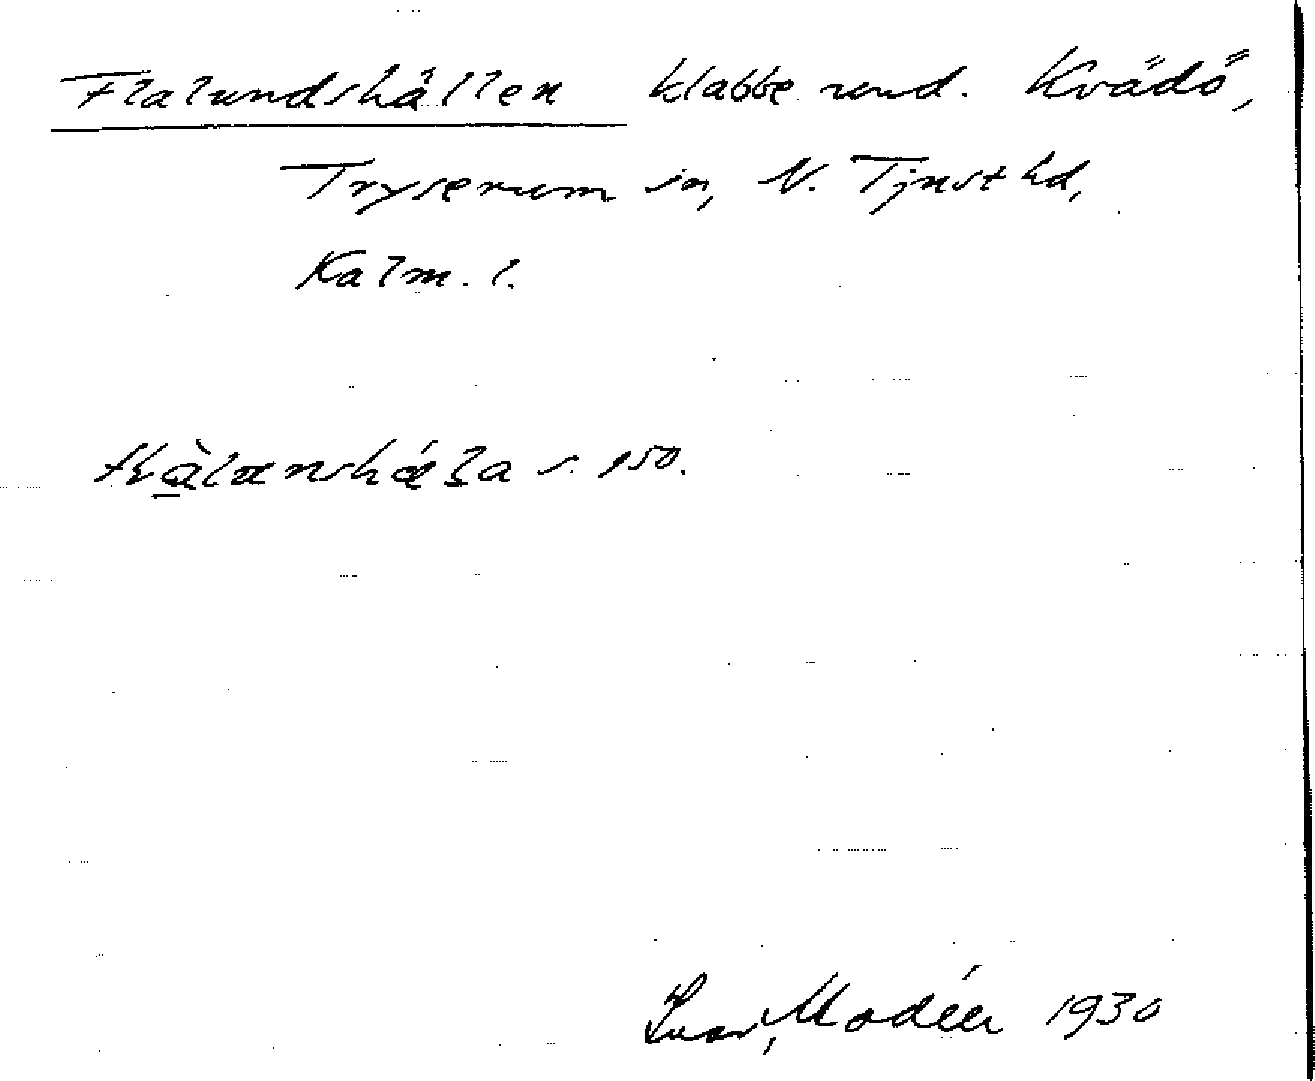 Flalundshällen klabbe und. Kvädö,
Tryserum sn, N. Tjust hd,
Kalm. l.
s. 150.
Ivar Modéer 1930